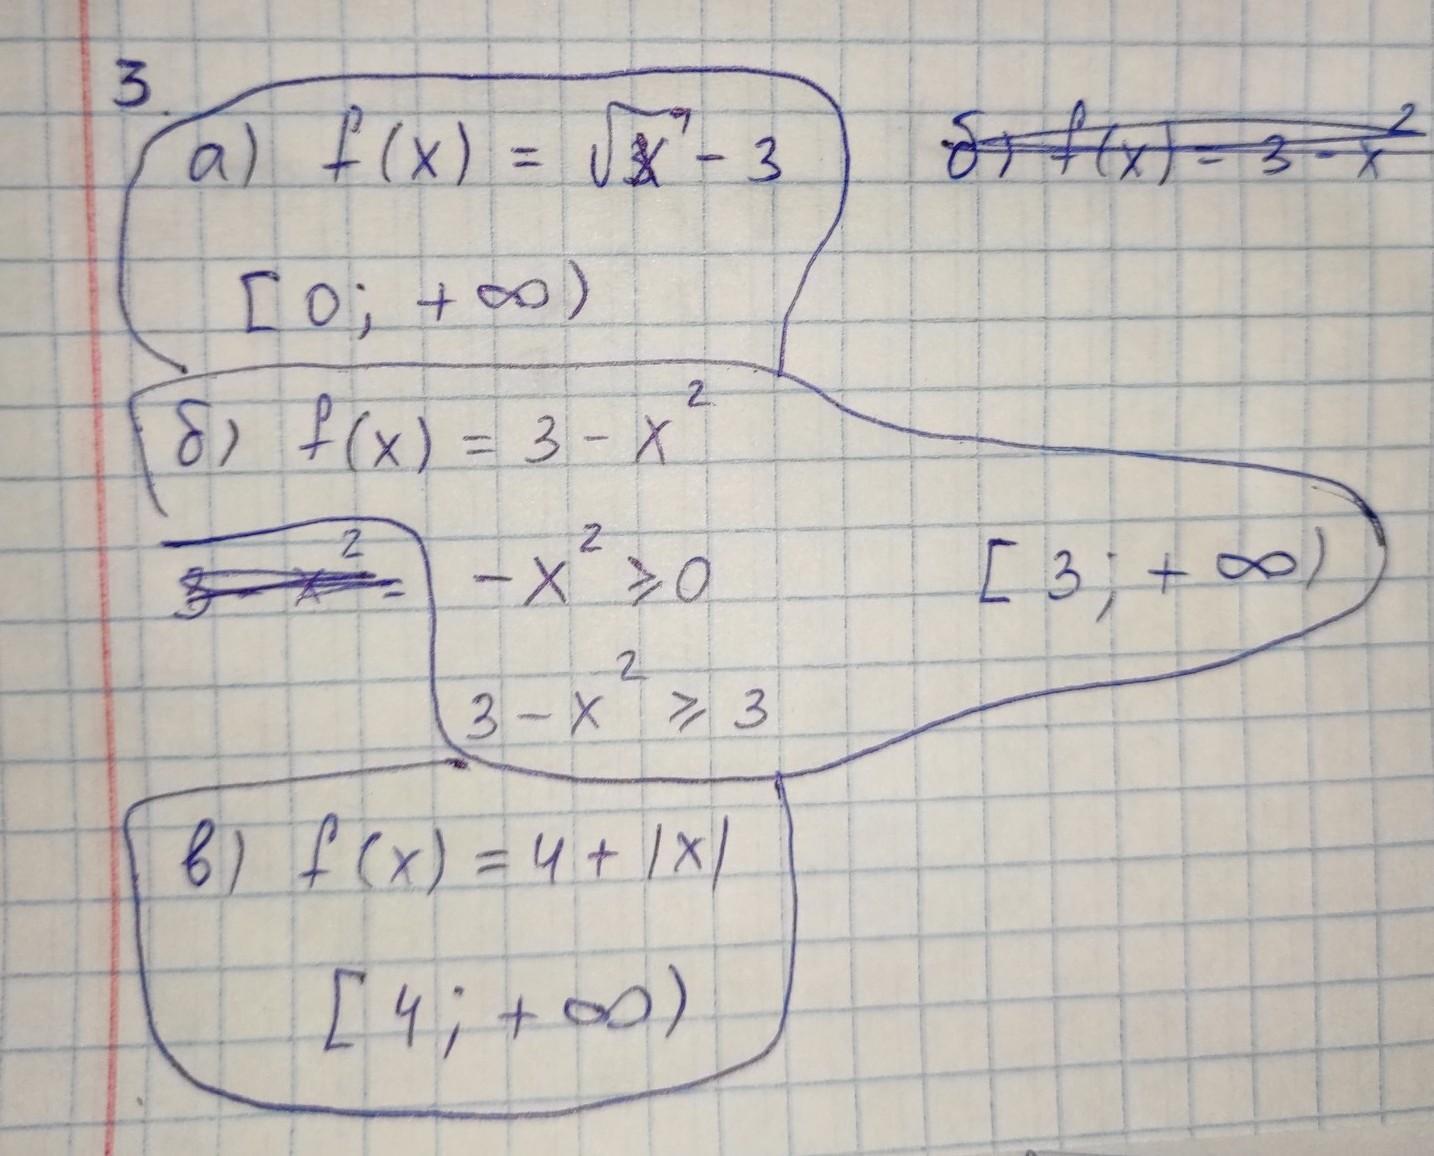 3.
а) f(x) = √x - 3
[0; +∞)
б) f(x) = 3 - x²
б) f(x) = 3 - x²
3 - x² =
-x² ⩾ 0
[3; +∞)
3 - x² ⩾ 3
в) f(x) = 4 + |x|
[4; +∞)